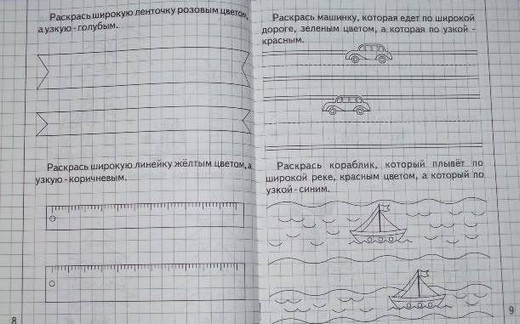 Раскрась широкую ленточку розовым цветом,
а узкую - голубым.
Раскрась широкую линейку жёлтым цветом, а
узкую - коричневым.
8
Раскрась машинку, которая едет по широкой
дороге, зеленым цветом, а которая по узкой -
красным.
Раскрась кораблик, который плывёт по
широкой реке, красным цветом, а который по
узкой - синим.
9